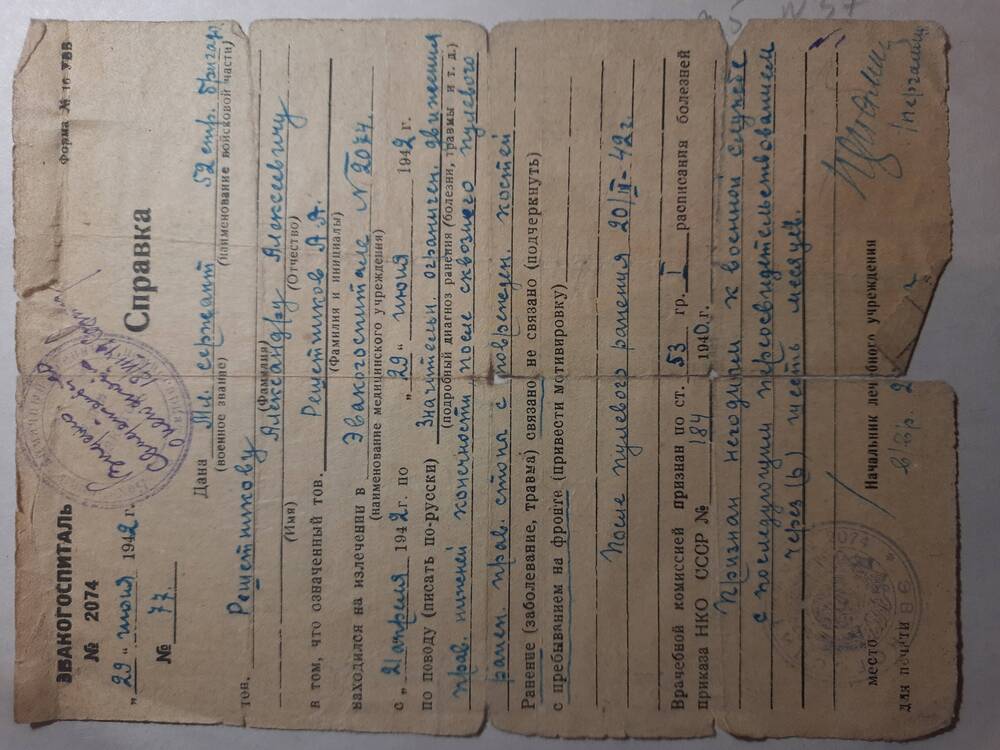 Форма № 16 УВВ
ЭВАКОГОСПИТАЛЬ
№ 2074
„29" июня 1942 г.
№ 77.
Справка
Дана Мл. сержант 52 стр. бригады
(военное звание) (наименование войсковой части)
тов. Решетникову
(Фамилия)
Александру Алексеевичу
(Имя) (Отчество)
в том, что означенный тов. Решетников А.А.
(Фамилия и инициалы)
находился на излечении в Эвакогоспитале № 2074.
(наименование медицинского учреждения)
с „21 апреля 1942 г. по „29" июня 1942 г.
по поводу (писать по-русски) Значительн. ограничен. движения
(подробный диагноз ранения (болезни, травмы и т. д.)
прав. нижней конечности после сквозного пулевого
ранен. прав. стопа с поврежден. костей
Ранение (заболевание, травма) связано, не связано (подчеркнуть)
с пребыванием на фронте (привести мотивировку)
После пулевого ранения 20/II-42г.
Врачебной комиссией признан по ст. 53 гр. I расписания болезней
приказа НКО СССР № 184 1940 г.
Признан негодным к военной службе
с последующим переосвидетельствованием
через (6) шесть месяцев.
место
для печати
Начальник лечебного учреждения
2074